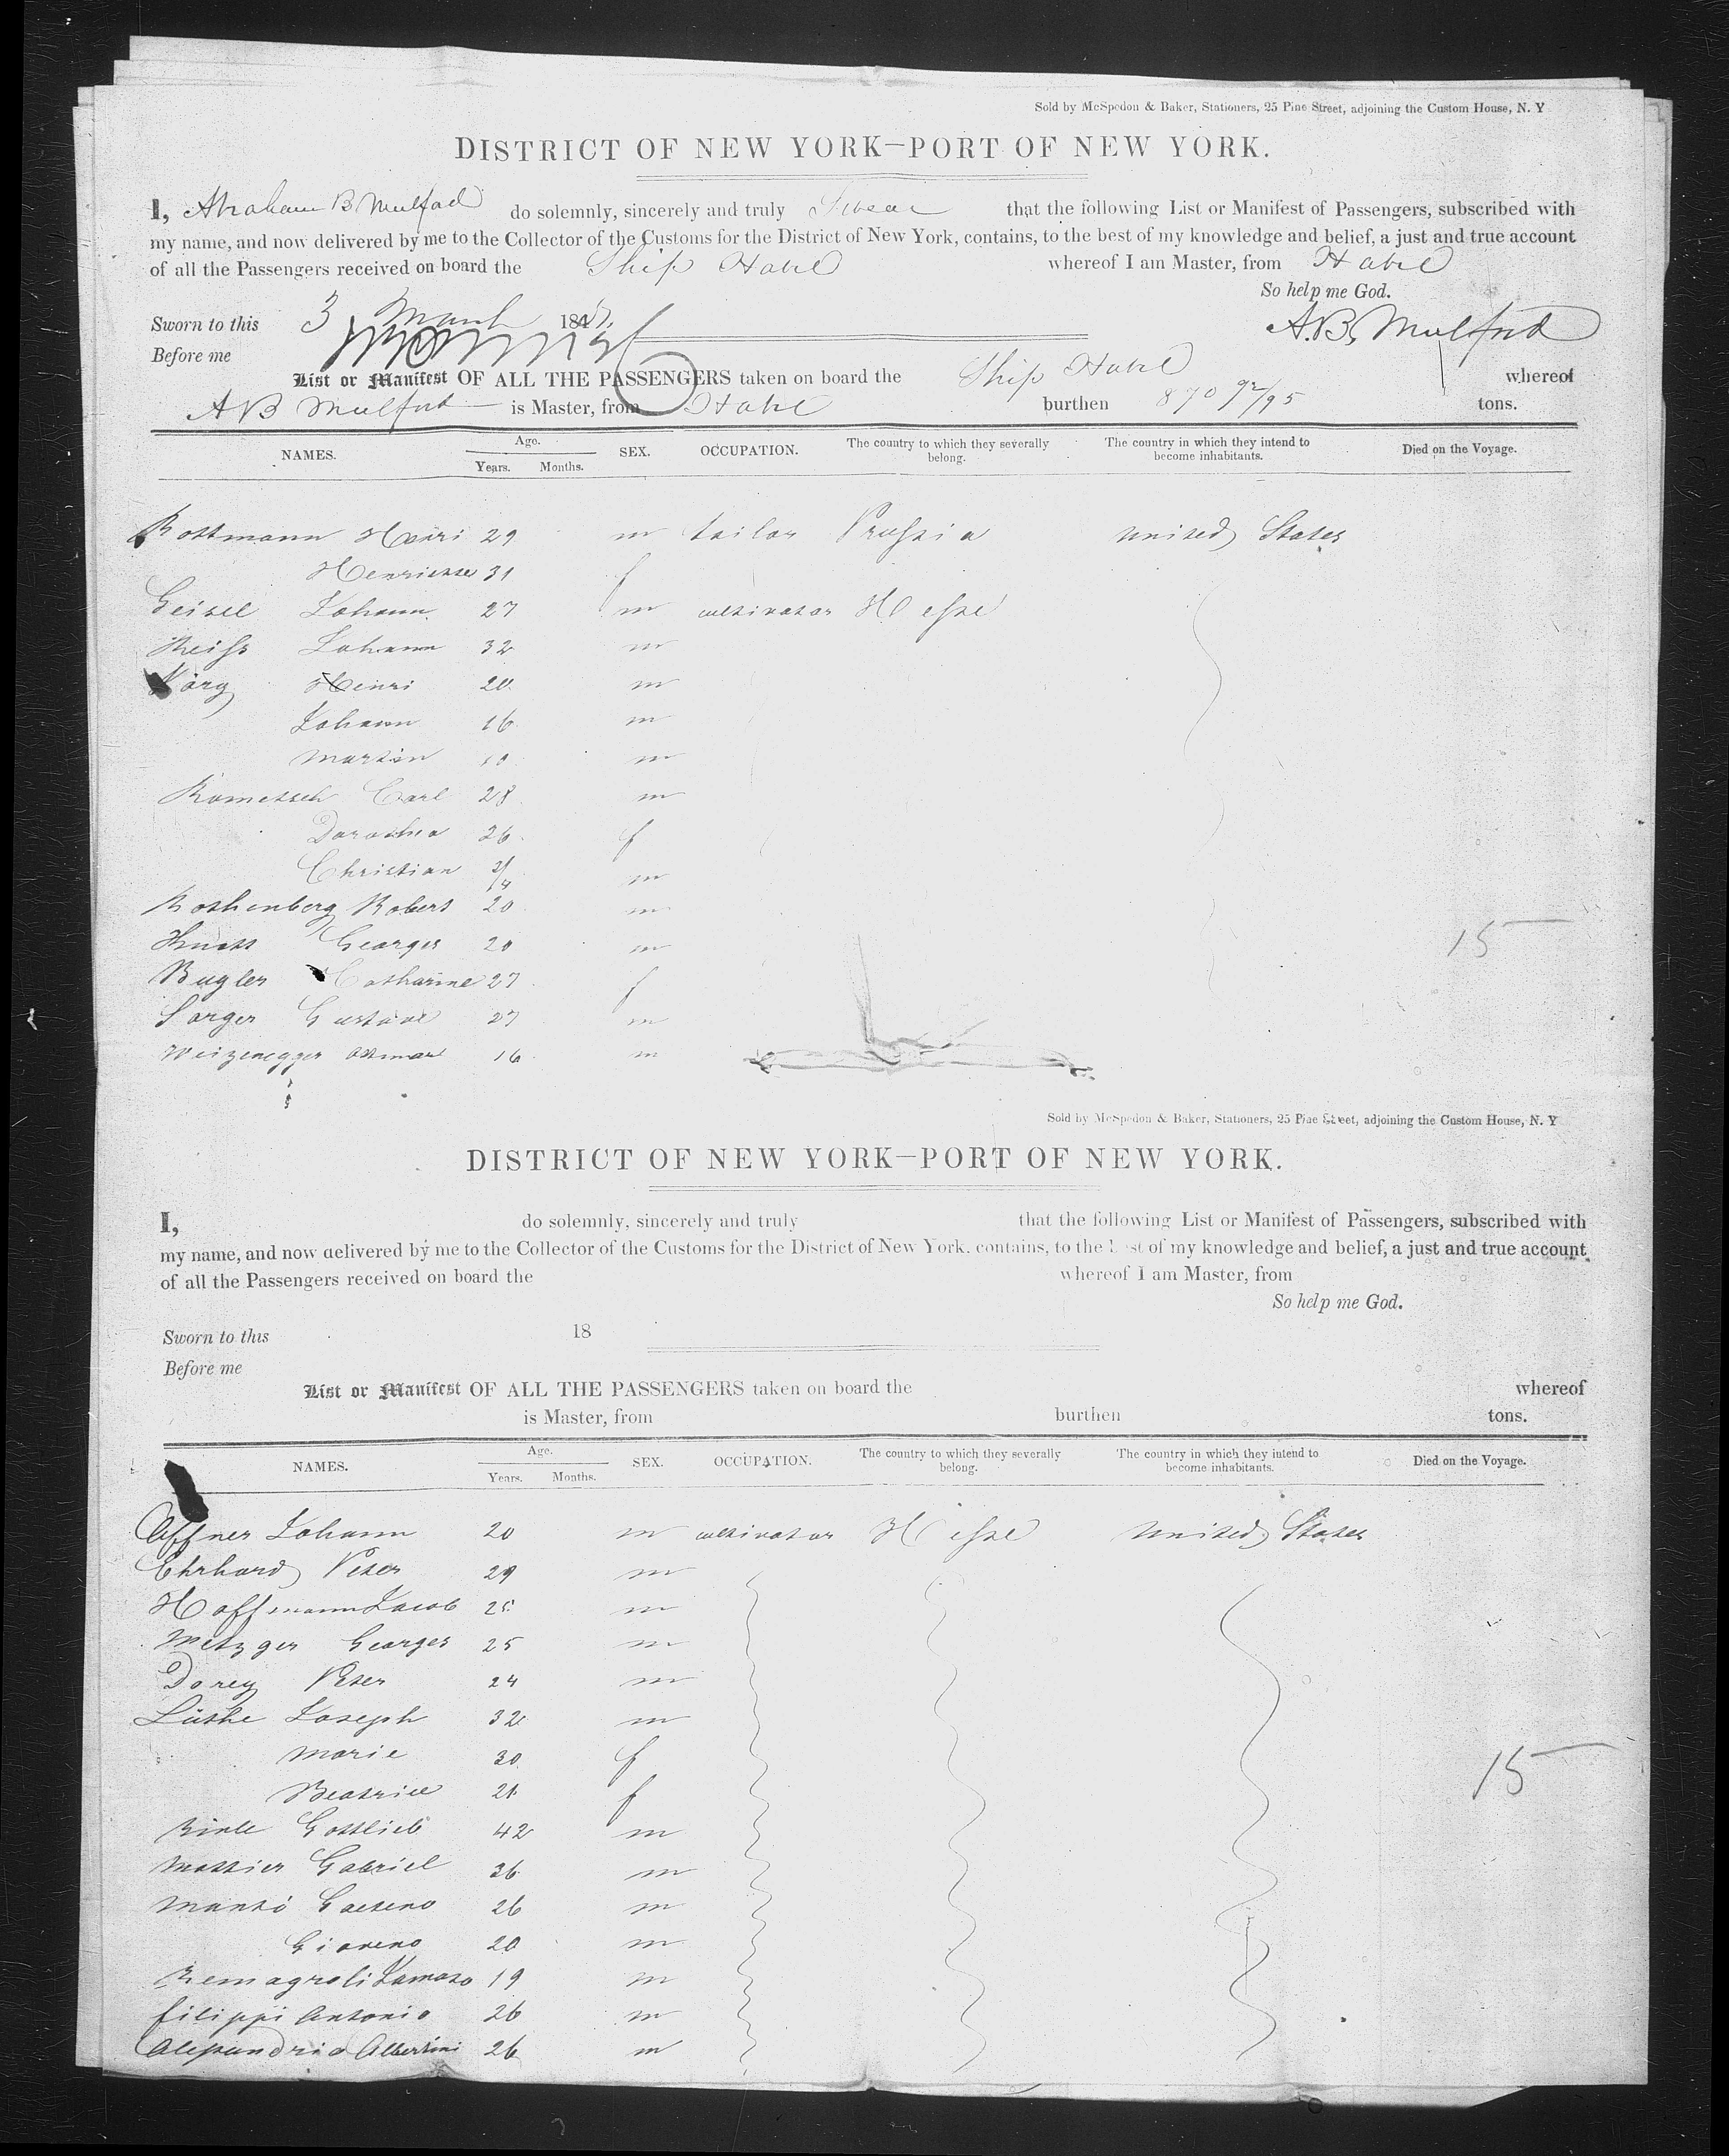 Sold by McSpedon & Baker, Stationers, 25 Pine Street, adjoining the Custom House, N. Y
DISTRICT OF NEW YORK—PORT OF NEW YORK.
I, Abraham B Mulford do solemnly, sincerely and truly Swear that the following List or Manifest of Passengers, subscribed with
my name, and now delivered by me to the Collector of the Customs for the District of New York, contains, to the best of my knowledge and belief, a just and true account
of all the Passengers received on board the Ship Havre whereof I am Master, from Havre
So help me God.
Sworn to this 3 March 184 A.B. Mulford
Before me
List or Manifest OF ALL THE PASSENGERS taken on board the Ship Havre whereof
A B Mulford is Master, from Havre burthen 870 92/95 tons.
NAMES. Age. Years. Months. SEX. OCCUPATION. The country to which they severally belong. The country in which they intend to become inhabitants. Died on the Voyage.
Rottmann Henri 29 m tailor Prussia united States
Henriette 31 f
Geisel Johann 27 m cultivator Hesse
Reiss Johann 32 m
Henri 20 m
Johann 16 m
Martin m
Rometsch Carl 28 m
Dorothea 26 f
Christian 3/4 m
Rothenberg Robert 20 m
Georges 20 m 15
Bugler Catharine 27 f
Sorger Gustave 27 m
Weizenegger Ottmar 16 m
Sold by McSpedon & Baker, Stationers, 25 Pine Street, adjoining the Custom House, N. Y
DISTRICT OF NEW YORK—PORT OF NEW YORK.
I, do solemnly, sincerely and truly that the following List or Manifest of Passengers, subscribed with
my name, and now delivered by me to the Collector of the Customs for the District of New York, contains, to the best of my knowledge and belief, a just and true account
of all the Passengers received on board the whereof I am Master, from
So help me God.
Sworn to this 18
Before me
List or Manifest OF ALL THE PASSENGERS taken on board the whereof
is Master, from burthen tons.
NAMES. Age. Years. Months. SEX. OCCUPATION. The country to which they severally belong. The country in which they intend to become inhabitants. Died on the Voyage.
Offner Johann 20 m cultivator Hesse united States
Ehrhard Peter 29 m
Hoffmann Jacob 25 m
Metzger Georges 25 m
Dorey Peter 24 m
Lüthe Joseph 32 m
Marie 30 f
Beatrice 21 f 15
Gottlieb 42 m
Gabriel 36 m
Gaeteno 26 m
20 m
19 m
filippi Antonio 26 m
Albertini 26 m